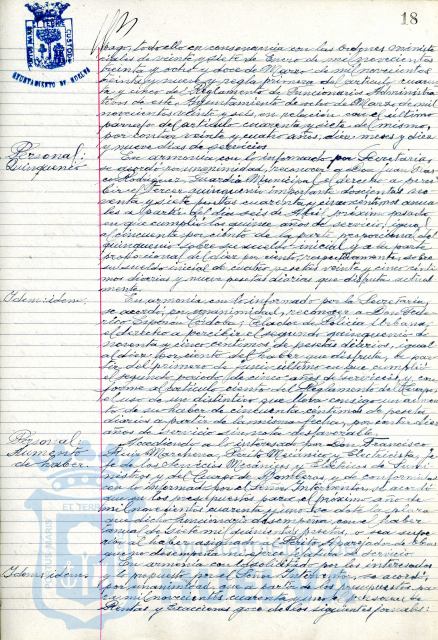 18
AYUNTAMIENTO DE HUELVA
pago, todo ello en consonancia con las ordenes ministe
riales de veinte y siete de Enero de mil novecientos
treinta y ocho y doce de Marzo de mil novecientos
treinta y nueve y regla primera del articulo cuaren
ta y cinco del Reglamento de Funcionarios Administra
tivos de este Ayuntamiento de ocho de Marzo de mil
novecientos veinte y seis, en relación con el último
parrafo del articulo cuarenta y siete del mismo,
por contar veinte y cuatro años, diez meses y diez
y nueve dias de servicios.
Personal:
Quinquenio
En armonia con lo informado por Secretaria,
se acordó por unanimidad, reconocer a Don Juan
Rodriguez, Guardia Municipal el derecho a perci
bir el tercer quinquenio importante doscientas
y siete pesetas cuarenta y cinco centimos anua
les a partir del dia seis de Abril próximo pasado,
en que cumplió los quince años de servicio, igual
al cincuenta por ciento de la parte proporcional del
quinquenio sobre su sueldo inicial y a la parte
proporcional del diez por ciento respectivamente, sobre
su sueldo inicial de cuatro pesetas veinte y cinco cénti
mos diarios y nueve pesetas diarias que disfruta actual
mente.
Idem: idem.
En armonia con lo informado por la Secretaria,
se acordó, por unanimidad, reconocer a Don Fede
rico Espinosa Córdoba, Celador de Policia Urbana,
el derecho a percibir el segundo quinquenio de
noventa y cinco centimos de pesetas diarios, igual
al diez por ciento del haber que disfruta, a par
tir del primero de Junio último en que cumplió
el segundo periodo de cinco años de servicios, y con
forme al articulo ciento del Reglamento del Cuerpo
el uso de un distintivo que lleva consigo un aumen
to de su haber de cincuenta centimos de peseta
diarios a partir de la misma fecha, por contar diez
años de servicio sin nota desfavorable.
Personal:
Aumento
de haber.
Accediendo a lo interesado por Don Francisco
Ruiz Marchena, Perito Mecánico y Electricista, Je
fe de los Servicios Mecánicos y Eléctricos de Sumi
nistros y del Cuerpo de Bomberos y de conformidad
con lo informado por el Señor Interventor, se acordó
que en los presupuestos para el próximo año de
mil novecientos cuarenta y uno se dote la plaza
que dicho funcionario desempeña, con el haber
anual de siete mil quinientas pesetas, o sea
al haber asignado al Perito Aparejador de Obras
que no desempeña ni ejerce jefatura de servicio.
Idem: idem.
En armonia con lo solicitado por los interesados
y lo propuesto por el Señor Interventor, se acordó,
por unanimidad, que a partir de los presupuestos pa
ra mil novecientos cuarenta y uno el personal de
Rentas y Exacciones goce de los siguientes jornales: